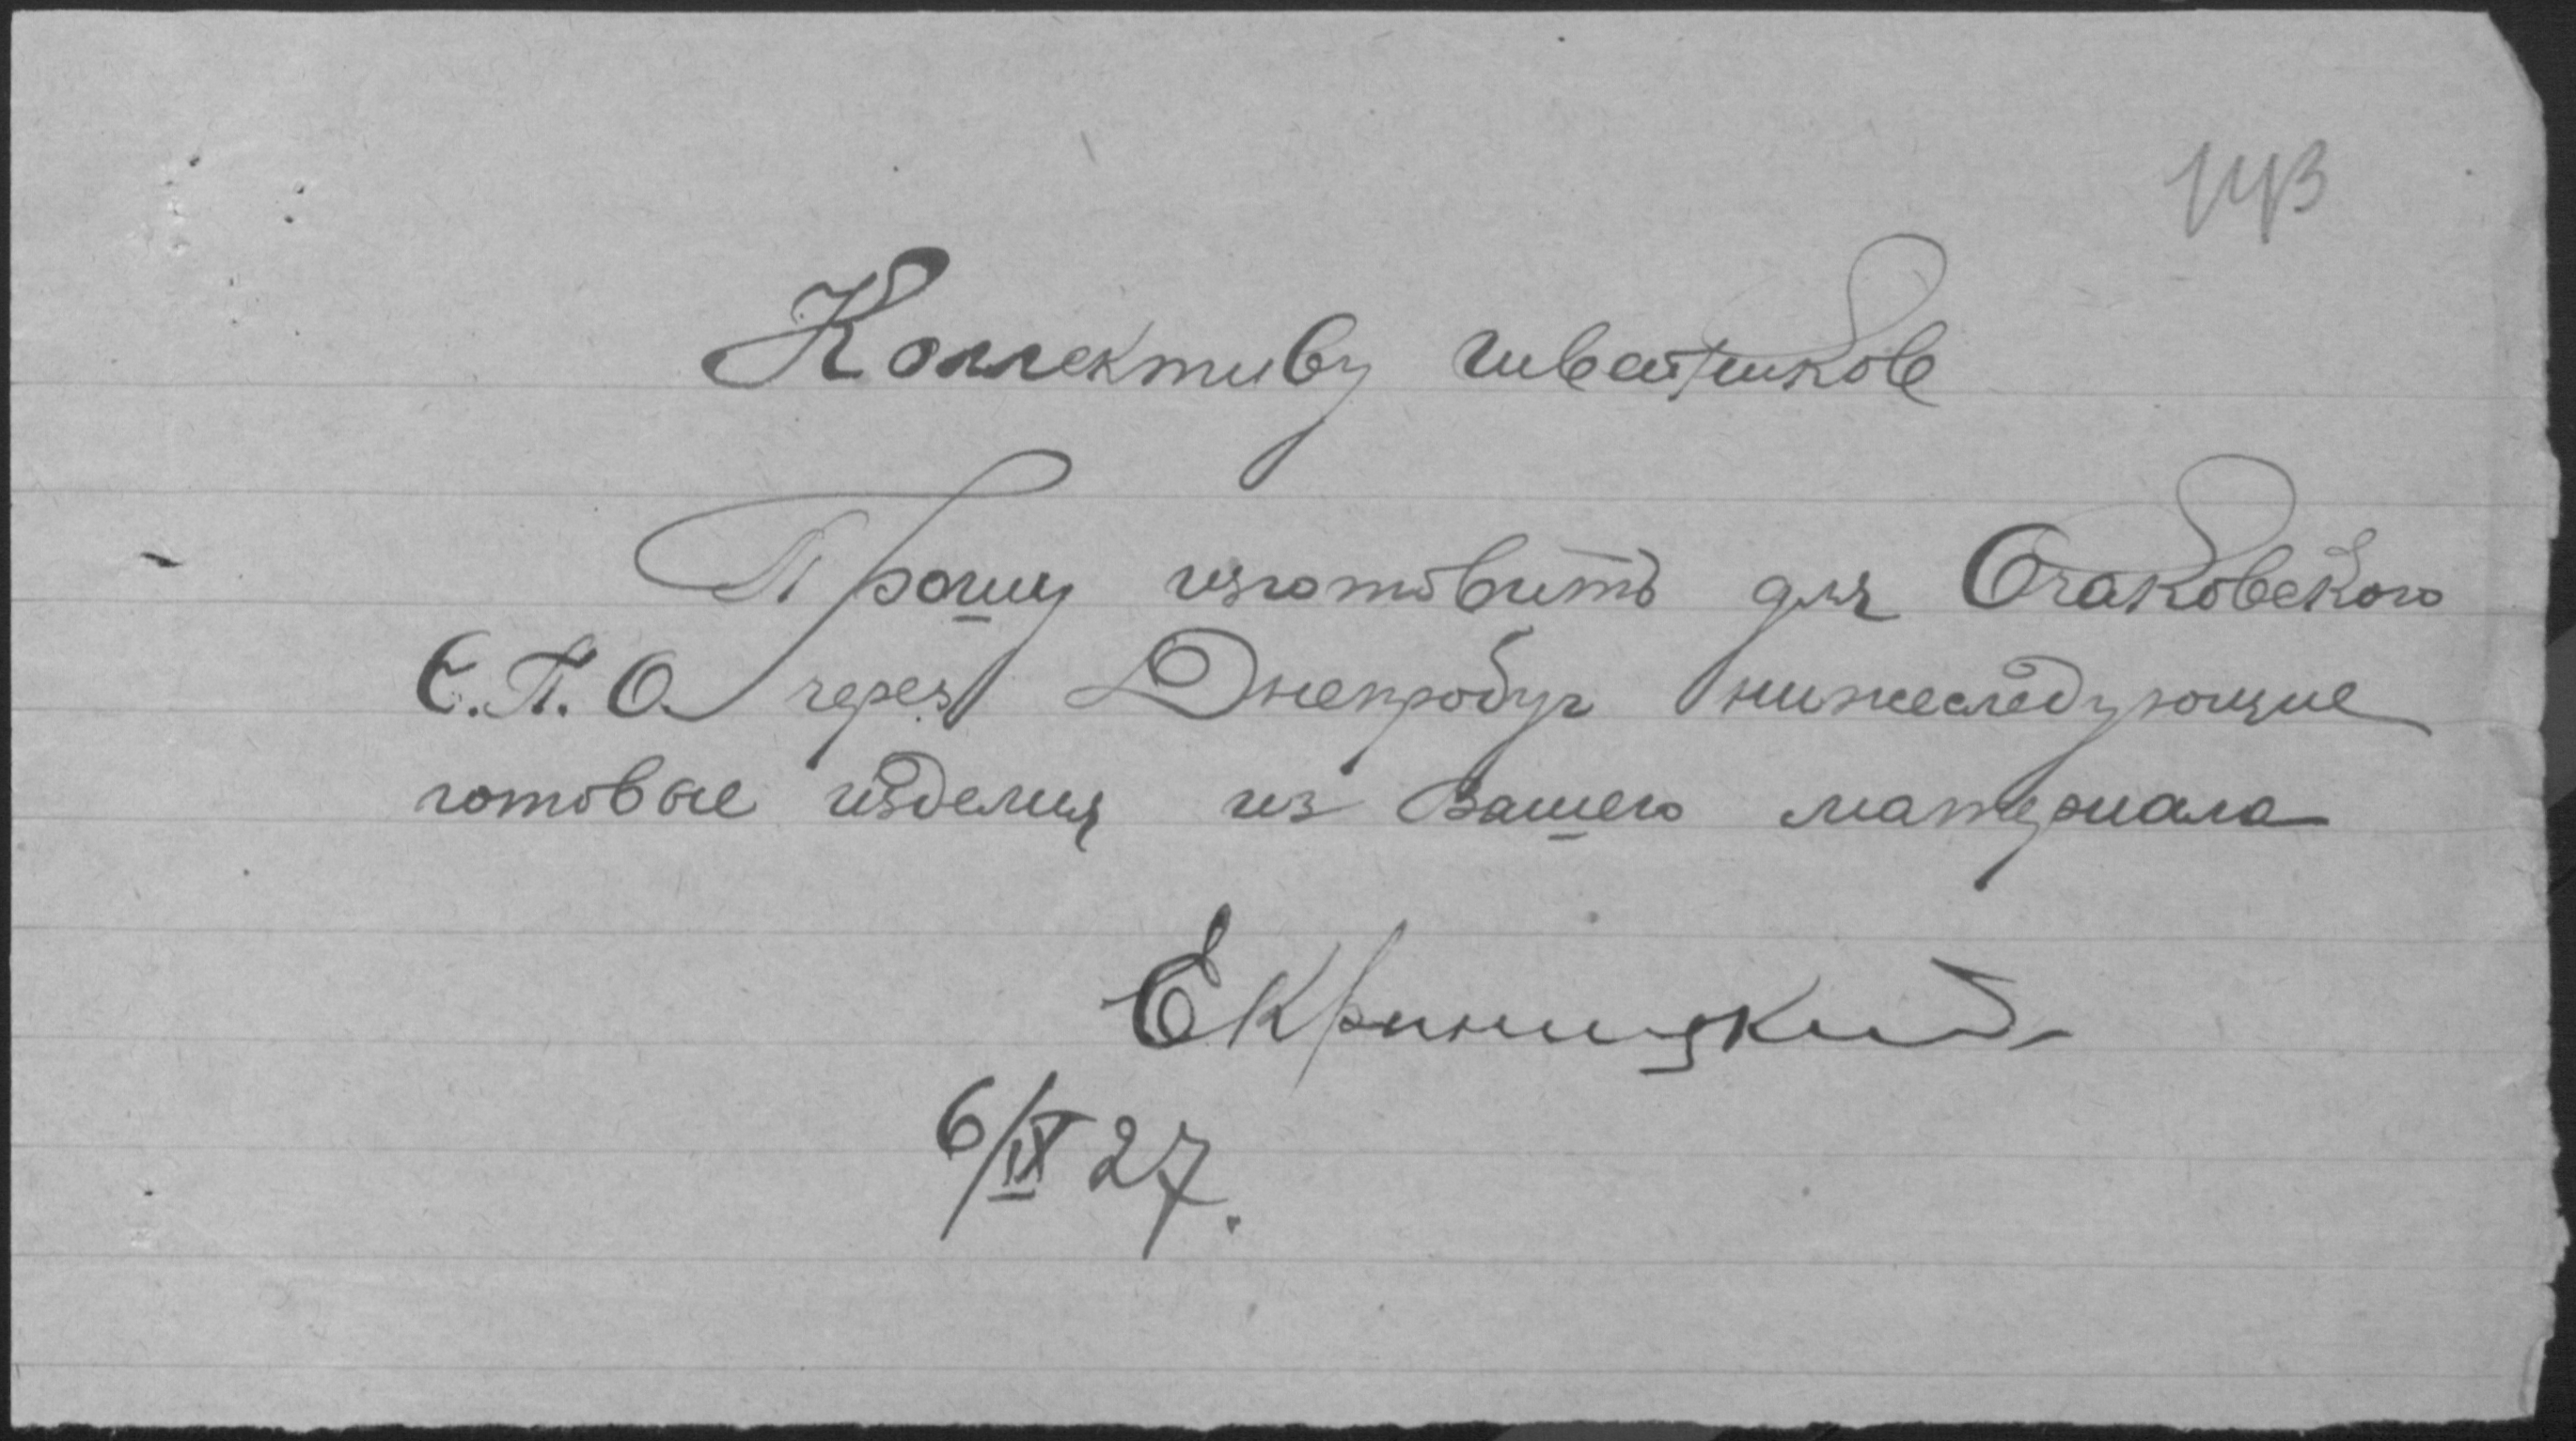 143
Коллективу швейников
Прошу изготовить для Очаковского
Е.П.О. через Днепробуг нижеследующие
готовые изделия из Вашего материала
Е Криницкий
6/IX 27.